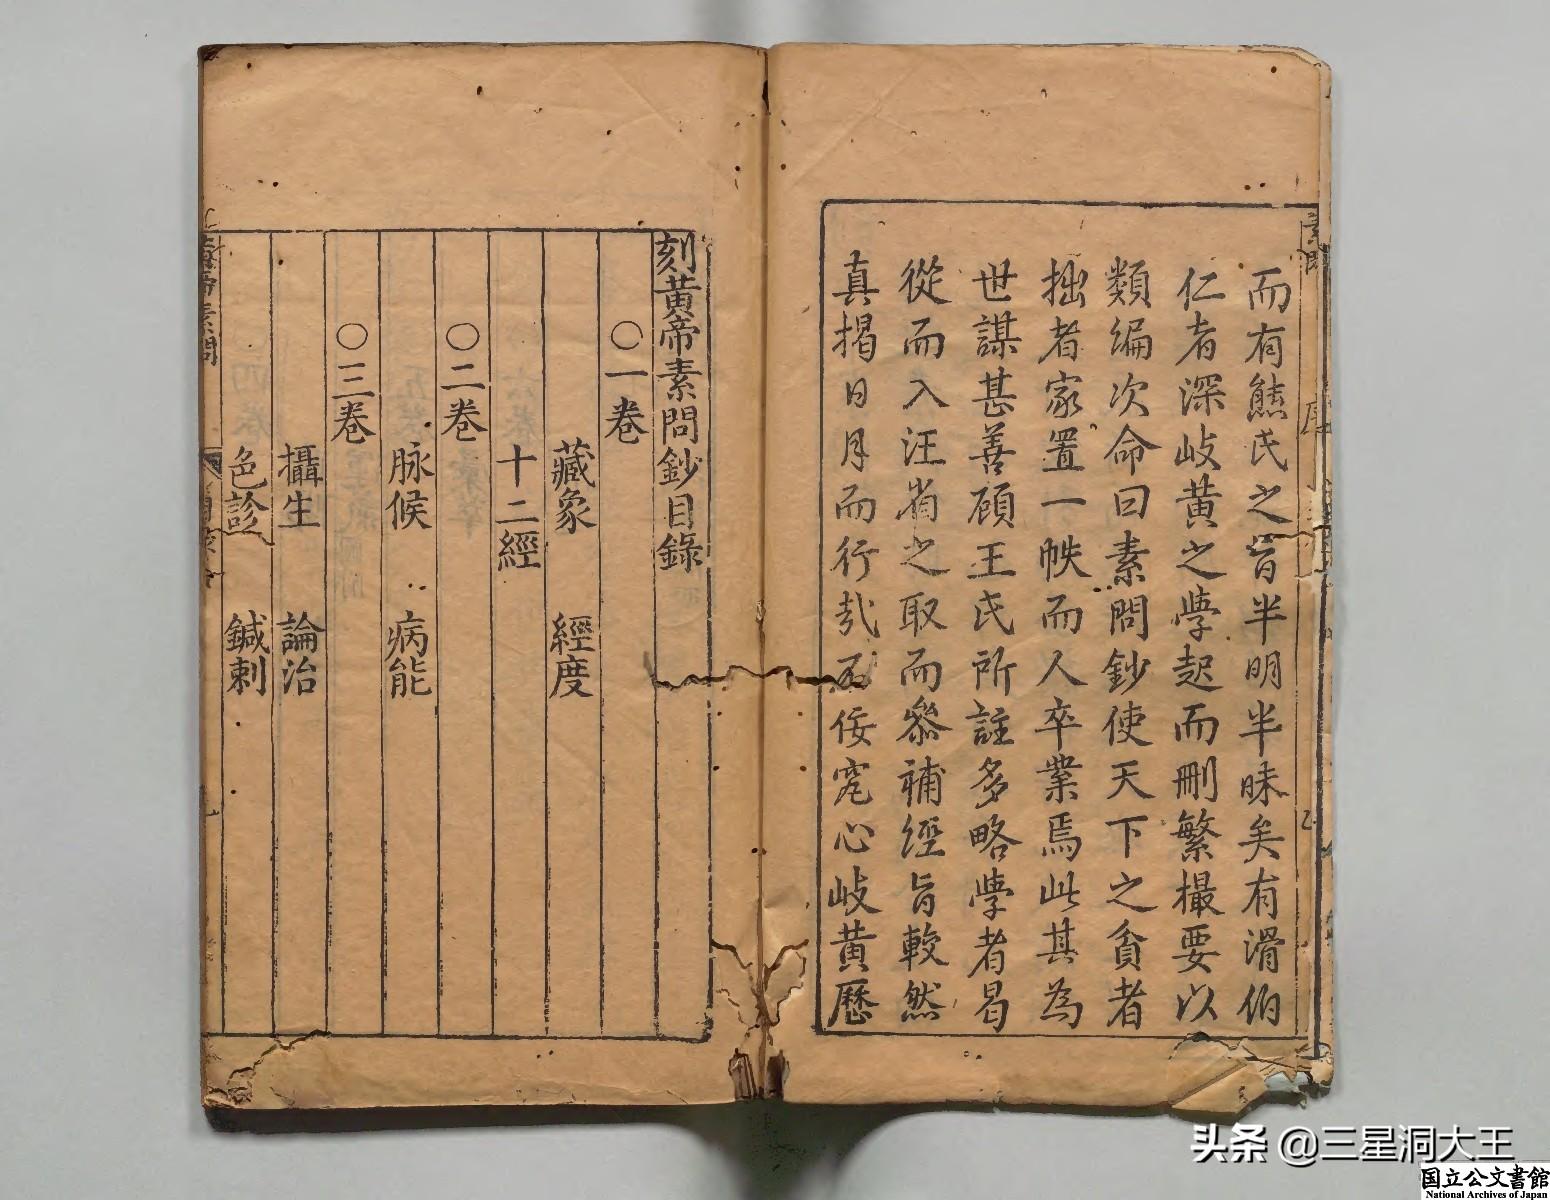 而有熊氏之旨半明半昧矣有滑伯
仁者深岐黄之學起而刪繁撮要以
類編次命曰素問鈔使天下之貧者
拙者家置一帙而人卒業焉此其為
世謀甚善顧王氏所註多略學者曷
從而入汪省之取而叅補經旨較然
真揭日月而行哉不佞究心岐黄歷
刻黄帝素問鈔目錄
〇一卷
藏象 經度
十二經
〇二卷
脉候 病能
〇三卷
攝生 論治
色診 鍼刺
头条 @三星洞大王
国立公文書館
National Archives of Japan